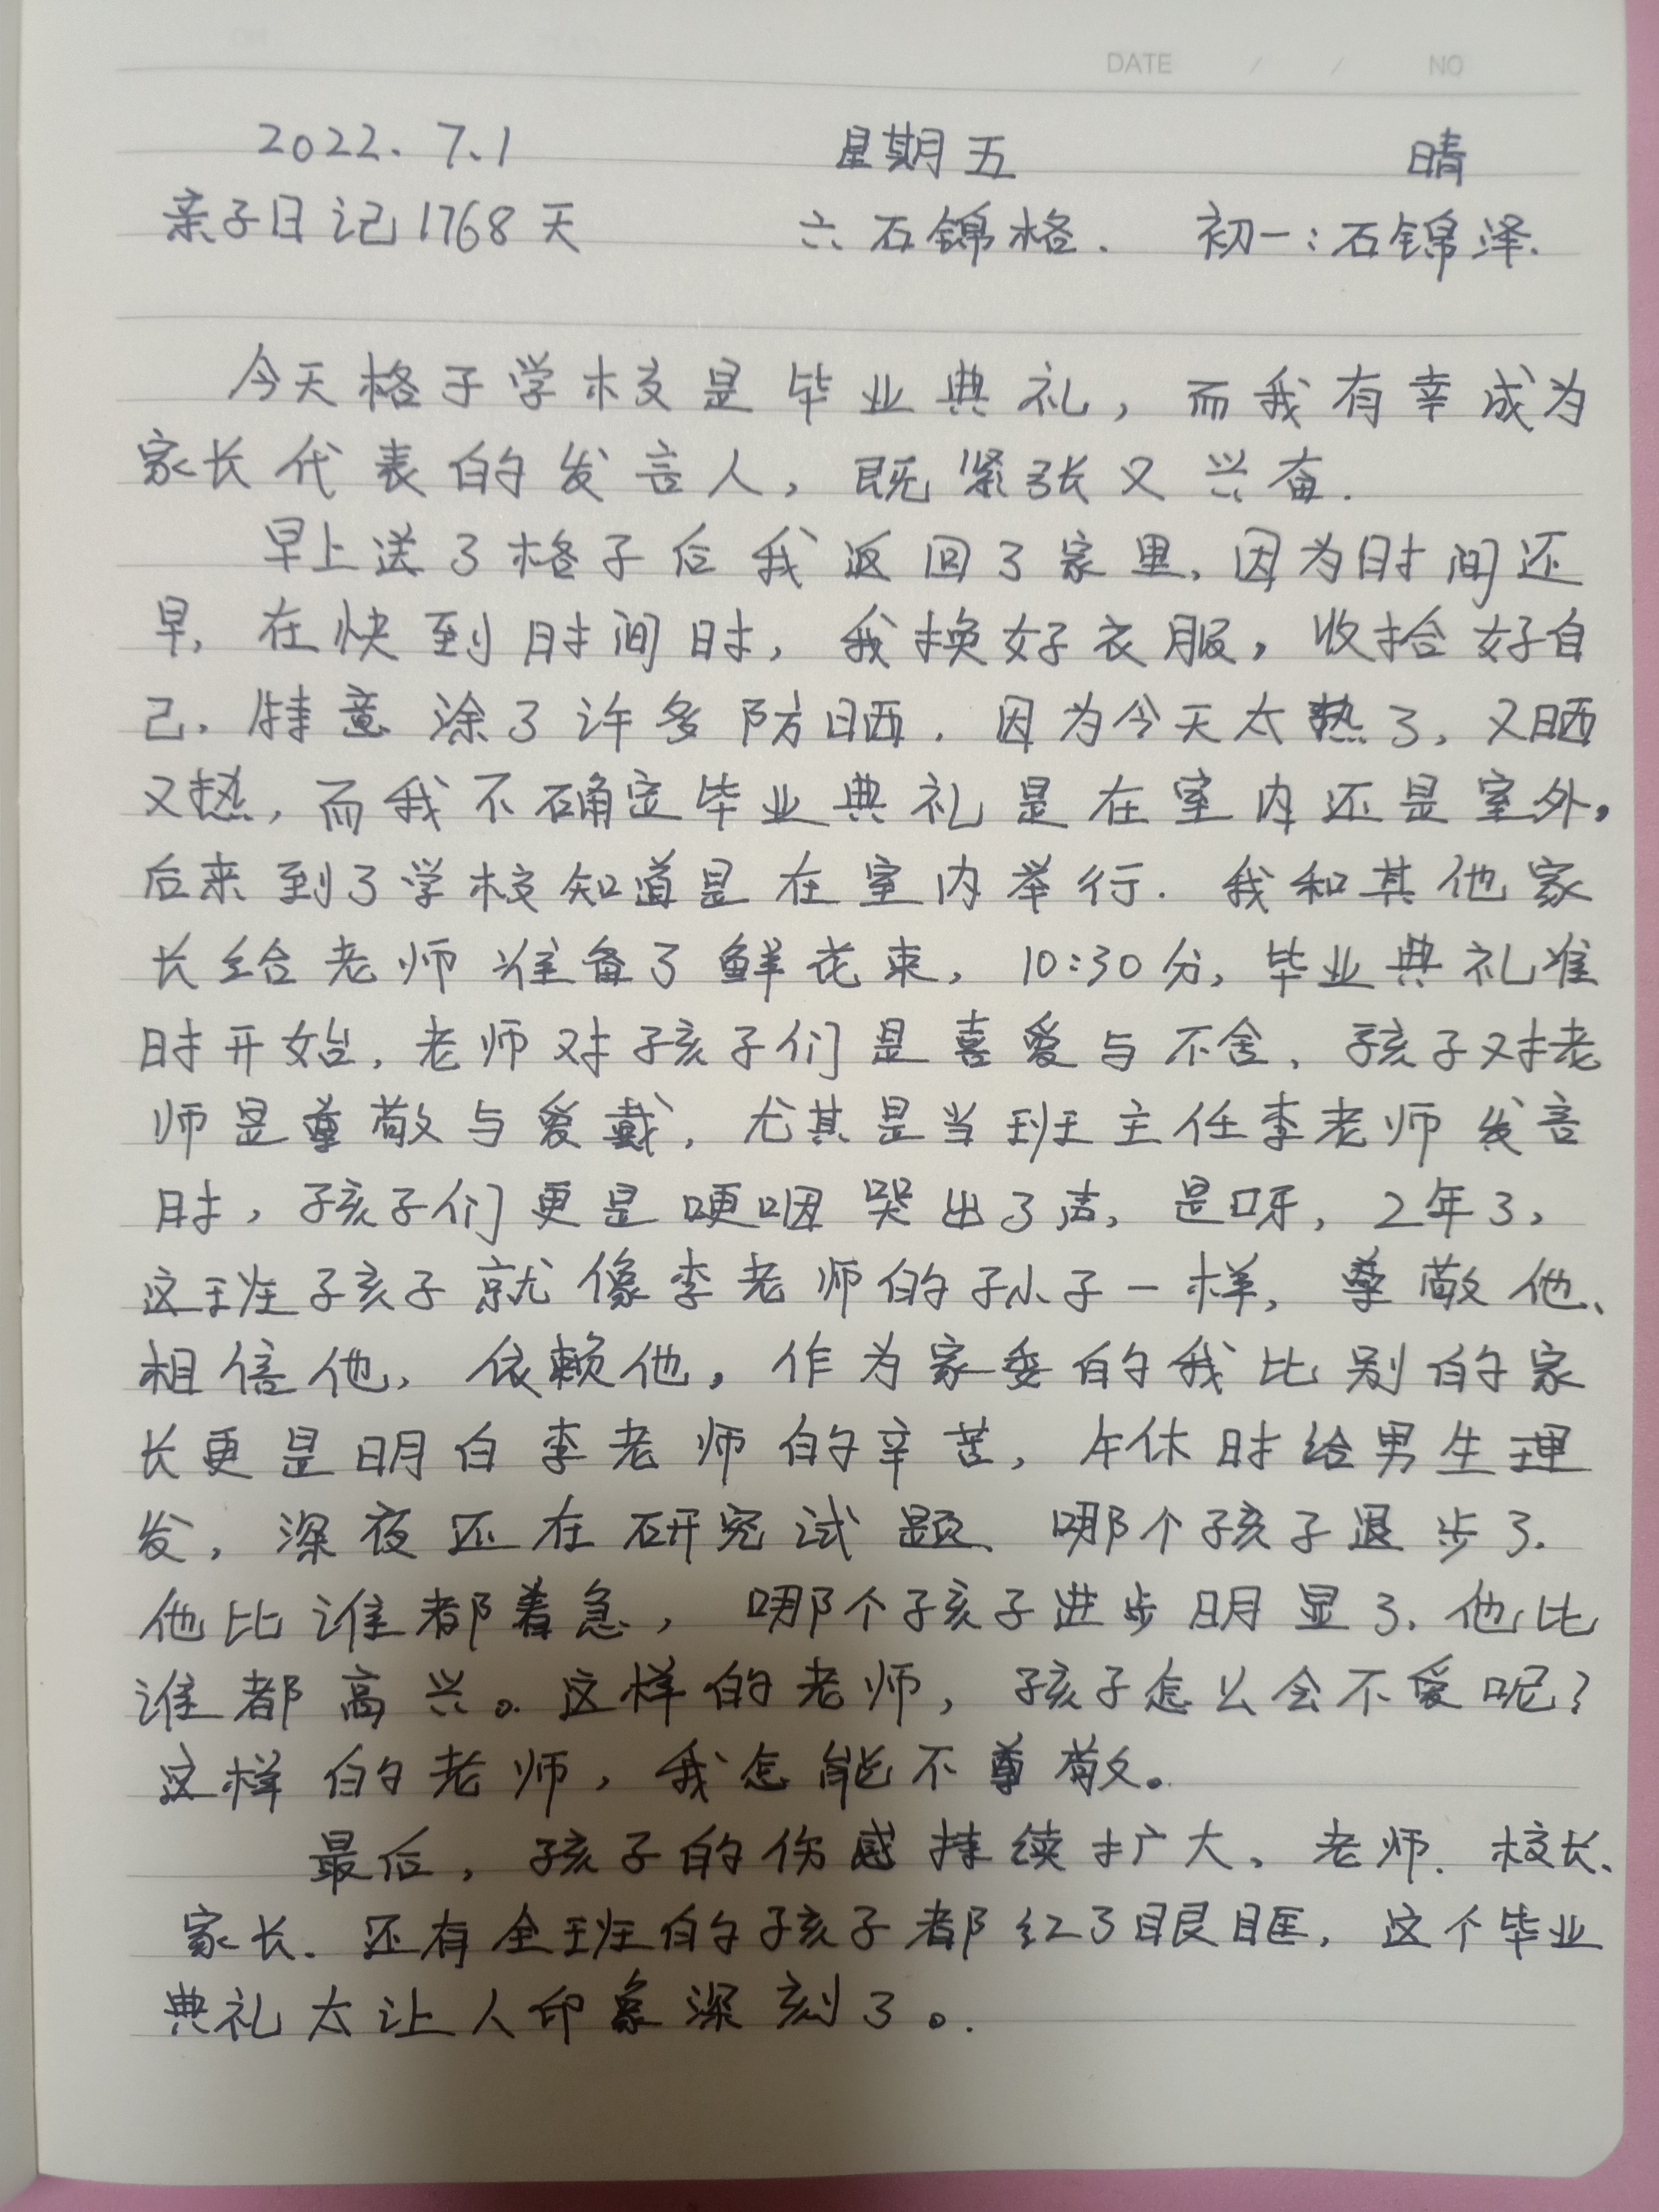 DATE / / NO
2022.7.1 星期五 晴
亲子日记1768天 六石锦格. 初一:石锦泽.
今天格子学校是毕业典礼,而我有幸成为
家长代表的发言人,既紧张又兴奋.
早上送了格子后我返回了家里,因为时间还
早,在快到时间时,我换好衣服,收拾好自
己.特意涂了许多防晒.因为今天太热了,又晒
又热,而我不确定毕业典礼是在室内还是室外,
后来到了学校知道是在室内举行.我和其他家
长给老师准备了鲜花束,10:30分,毕业典礼准
时开始,老师对孩子们是喜爱与不舍,孩子对老
师是尊敬与爱戴,尤其是当班主任李老师发言
时,孩子们更是哽咽哭出了声,是呀,2年了,
这班孩子就像李老师的孙子一样,尊敬他、
相信他、依赖他,作为家委的我比别的家
长更是明白李老师的辛苦,午休时给男生理
发,深夜还在研究试题、哪个孩子退步了.
他比谁都着急,哪个孩子进步明显了.他比
谁都高兴。这样的老师,孩子怎么会不爱呢?
这样的老师,我怎能不尊敬。
最后,孩子的伤感持续扩大,老师.校长、
家长.还有全班的孩子都红了眼眶,这个毕业
典礼太让人印象深刻了。.